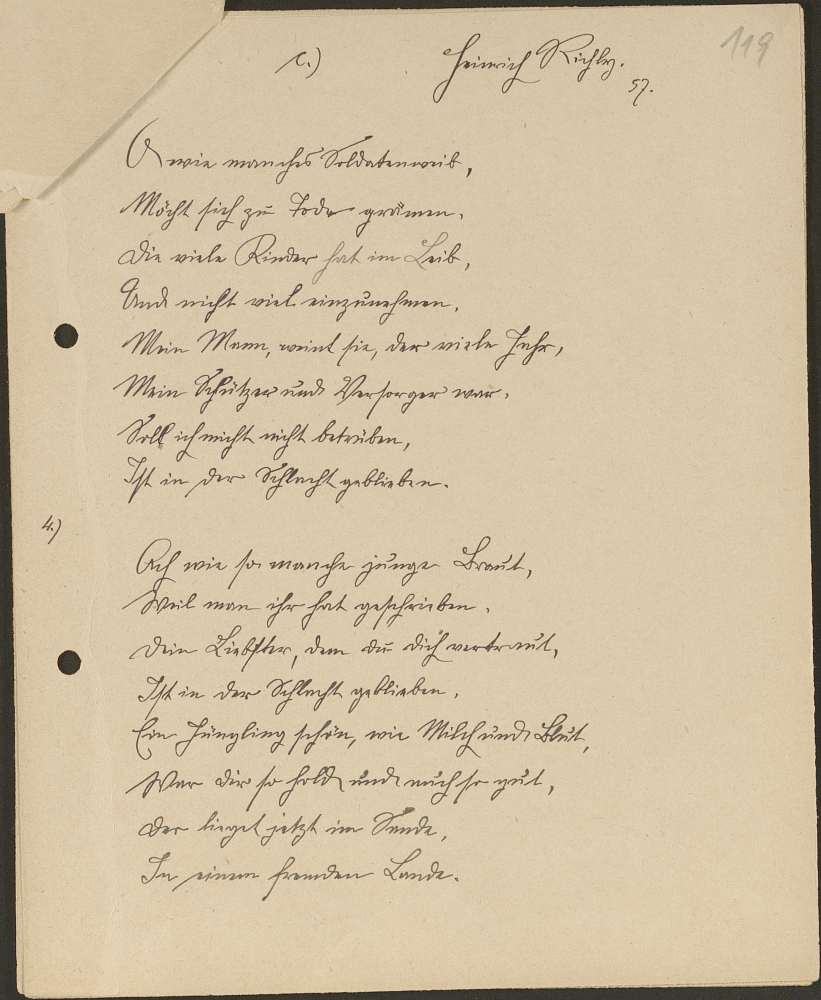 c.) Heinrich Richly. 119
57.
O wie manches Soldatenweib,
Möcht sich zu Tode grämen.
Die viele Kinder hat im Leib,
Und nicht viel einzunehmen.
Mein Mann, weint sie, der viele Jahr,
Mein Schützer und Versorger war.
Soll ich mich nicht betrüben,
Ist in der Schlacht geblieben.
4.)
Ach wie so manche junge Braut,
Weil man ihr hat geschrieben.
Dein Liebster, dem du dich vertraut,
Ist in der Schlacht geblieben.
Ein Jüngling schön, wie Milch und Blut,
War dir so hold und auch so gut,
Der lieget jetzt im Sande,
In einem fremden Lande.